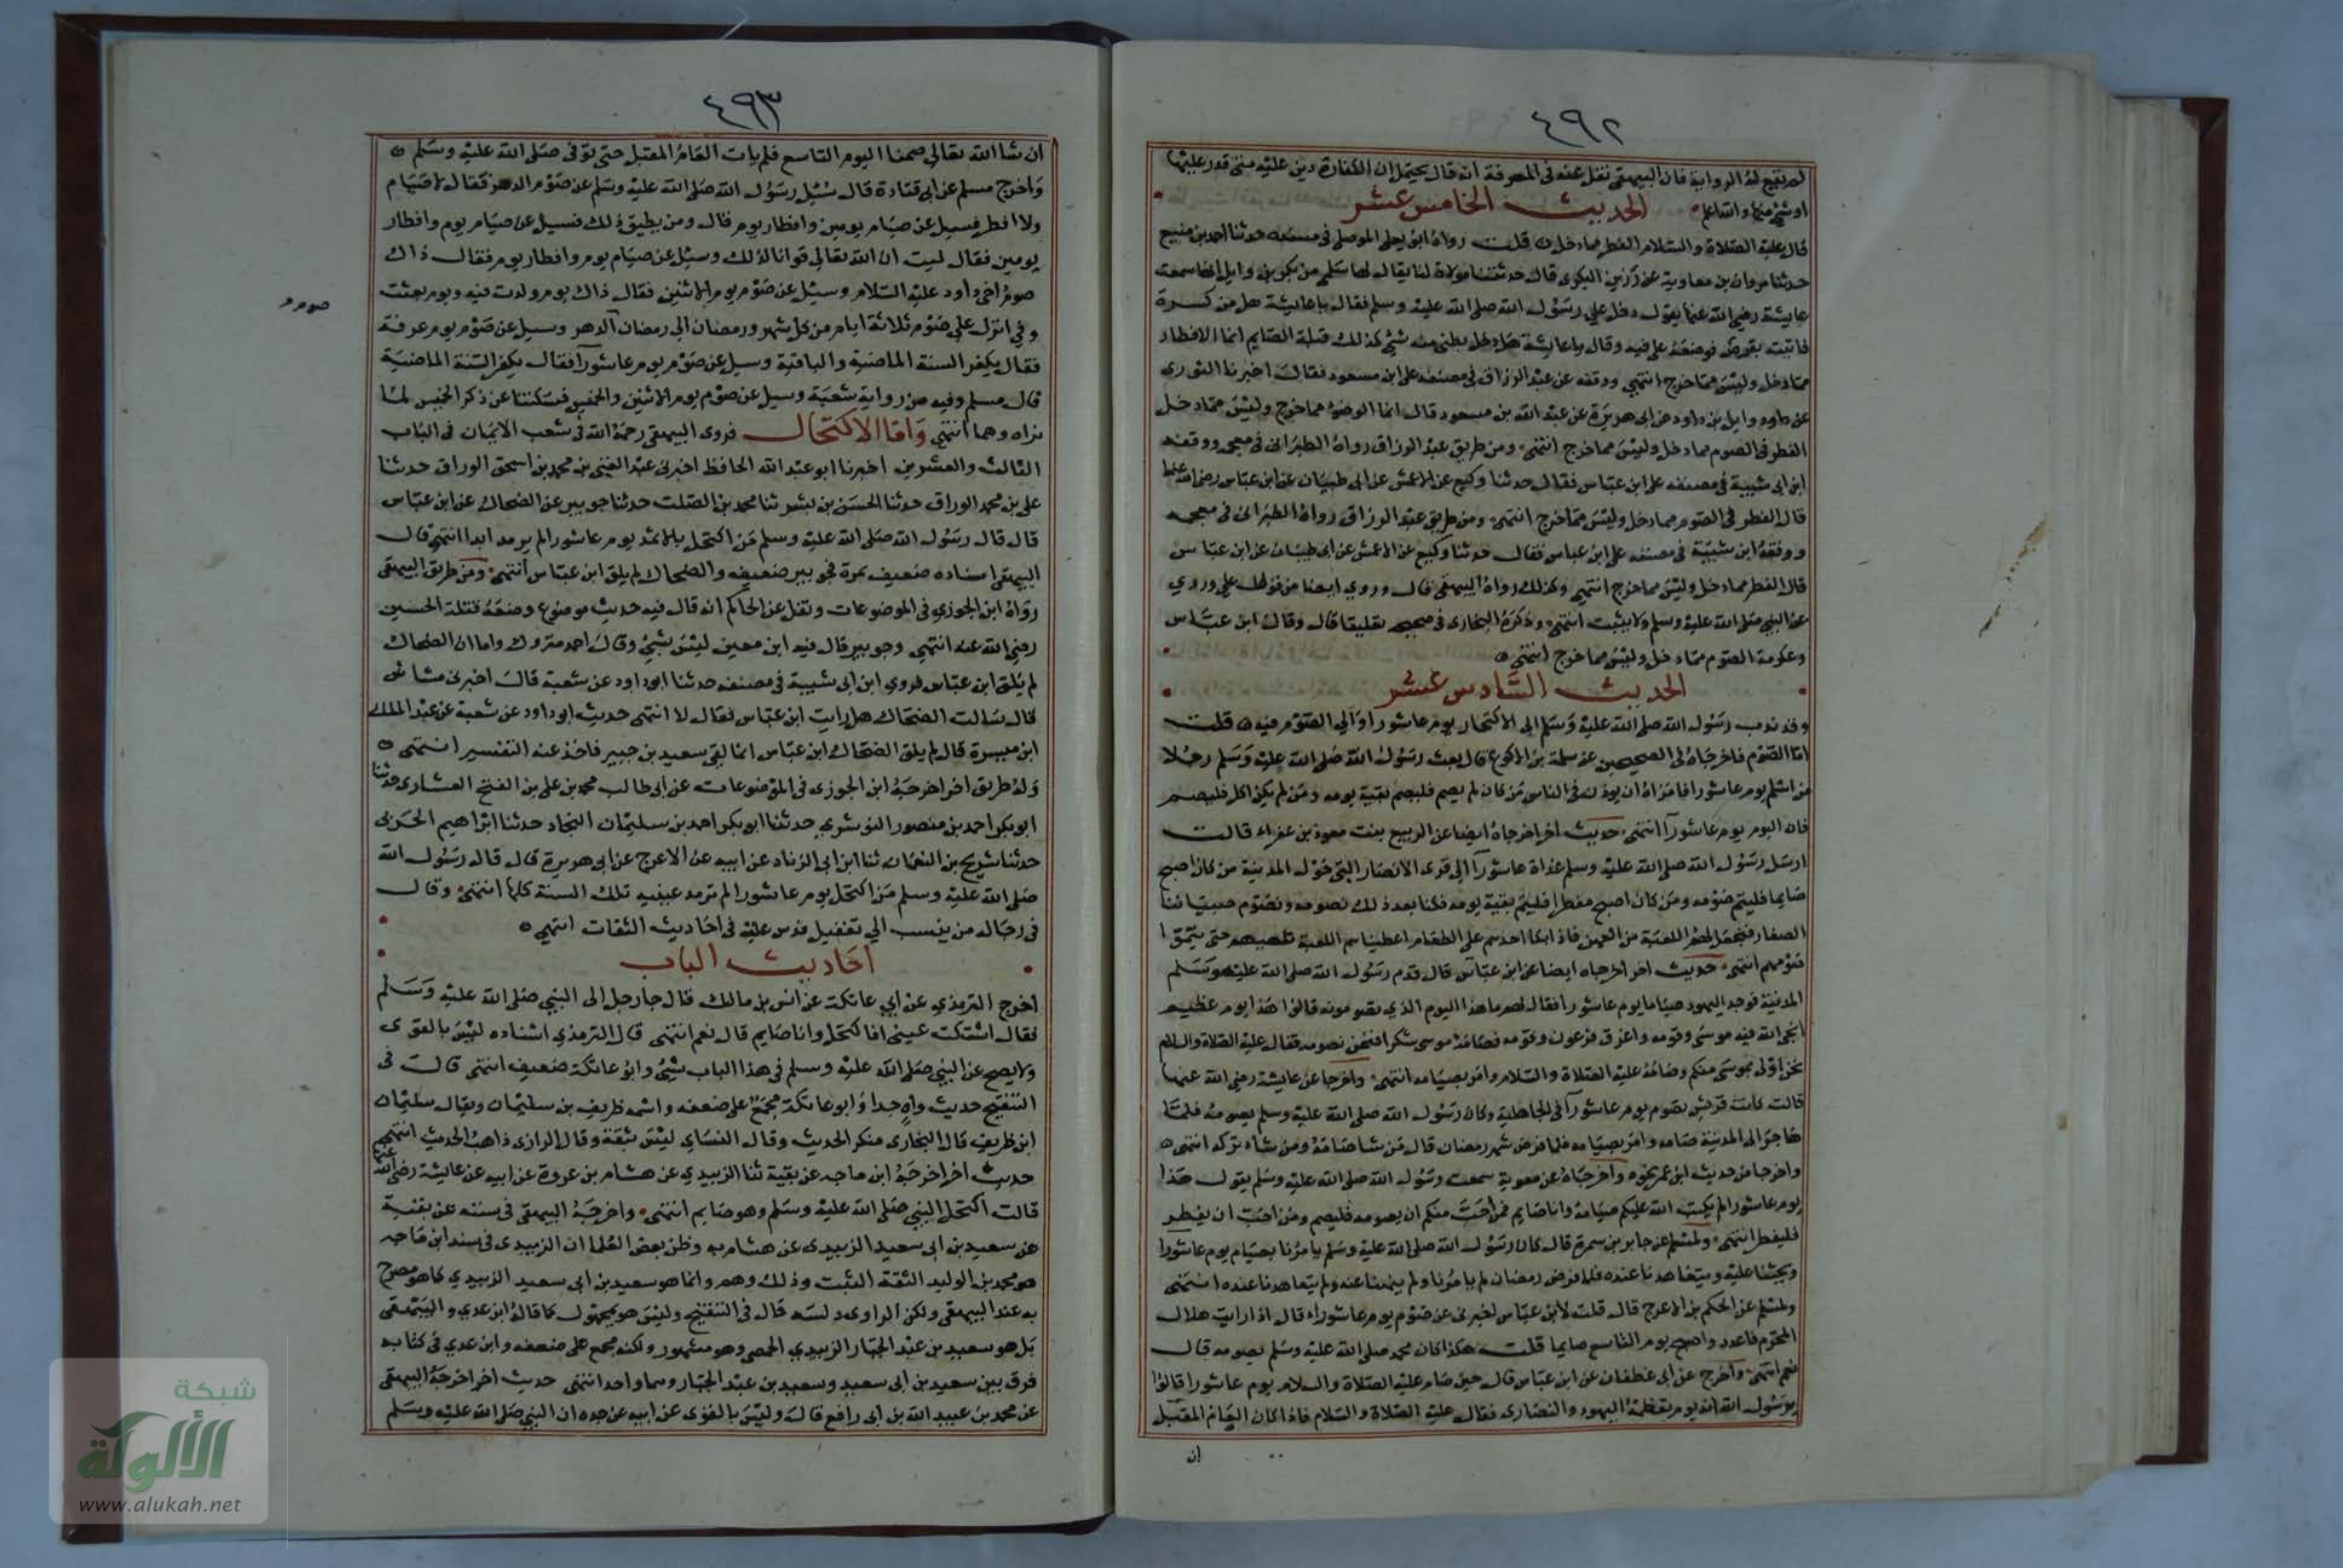 ٤٩٢
لم يقع له الرواية فان البيهقي نقل عنه في المعرفة انه قال يحتمل ان الكفارة دين عليه متى قدر عليها
او شئ منها والله اعلم الحديث الخامس عشر
قال عليه الصلاة والسلام الفطر مما دخل قلت رواه ابو يعلى الموصلي في مسنده حدثنا احمد بن منيع
حدثنا مروان بن معاوية عن رزين البكري قال حدثتنا مولاة لنا يقال لها سلمى من بكر بن وايل انها سمعت
عايشة رضي الله عنها تقول دخل علي رسول الله صلى الله عليه وسلم فقال يا عايشة هل من كسرة
فاتيته بقرص فوضعه على فيه وقال يا عايشة هل دخل بطني منه شئ كذلك قبلة الصايم انما الافطار
مما دخل وليس مما خرج انتهى ووقفه عبد الرزاق في مصنفه على ابن مسعود فقال اخبرنا الثوري
عن وايل بن داود عن ابي هريرة عن عبد الله بن مسعود قال انما الوضوء مما خرج وليس مما دخل
الفطر في الصوم مما دخل وليس مما خرج انتهى ومن طريق عبد الرزاق رواه الطبراني في معجمه ووقفه
ابن ابي شيبة في مصنفه على ابن عباس فقال حدثنا وكيع عن الاعمش عن ابي ظبيان عن ابن عباس رضي الله عنهما
قال الفطر في الصوم مما دخل وليس مما خرج انتهى ومن طريق عبد الرزاق رواه الطبراني في معجمه
ووقفه ابن شيبة في مصنفه على ابن عباس فقال حدثنا وكيع عن الاعمش عن ابي ظبيان عن ابن عباس
قال الفطر مما دخل وليس مما خرج انتهى وكذلك رواه البيهقي قال وروي ايضا من قول علي وروي
عن النبي صلى الله عليه وسلم ولا يثبت انتهى وذكره البخاري في صحيحه تعليقا قال وقال ابن عباس
وعكرمة الصوم مما دخل وليس مما خرج انتهى
الحديث السادس عشر
وقد ندب رسول الله صلى الله عليه وسلم الى الاكتحال يوم عاشورا والى الصوم فيه قلت
اما الصوم فاخرجاه في الصحيحين عن سلمة بن الاكوع قال بعث رسول الله صلى الله عليه وسلم رجلا
من اسلم يوم عاشورا فامره ان يوذن في الناس من كان لم يصم فليصم بقية يومه ومن لم يكن اكل فليصم
فان اليوم يوم عاشورآ انتهى حديث اخر اخرجاه ايضا عن الربيع بنت معوذ بن عفراء قالت
ارسل رسول الله صلى الله عليه وسلم غداة عاشورآ الى قرى الانصار التي حول المدينة من كان اصبح
صايما فليتم صومه ومن كان اصبح مفطرا فليتم بقية يومه فكنا بعد ذلك نصومه ونصوم صبياننا
الصغار فنجعل لهم اللعبة من العهن فاذا بكا احدهم على الطعام اعطيناهم اللعبة تلهيهم حتى يتموا
صومهم انتهى حديث اخر اخرجاه ايضا عن ابن عباس قال قدم رسول الله صلى الله عليه وسلم
المدينة فوجد اليهود صياما يوم عاشورا فقال لهم ما هذا اليوم الذي تصومونه قالوا هذا يوم عظيم
انجى الله فيه موسى وقومه واغرق فرعون وقومه فصامه موسى شكرا فنحن نصومه فقال عليه الصلاة والسلام
نحن اولى بموسى منكم وصامه عليه الصلاة والسلام وامر بصيامه انتهى واخرجا عن عايشة رضي الله عنها
قالت كانت قريش تصوم يوم عاشورآ في الجاهلية وكان رسول الله صلى الله عليه وسلم يصومه فلما
هاجر الى المدينة صامه وامر بصيامه فلما فرض شهر رمضان قال من شا صامه ومن شاء تركه انتهى
واخرجا من حديث ابن عمر نحوه واخرجاه عن معوية سمعت رسول الله صلى الله عليه وسلم يقول هذا
يوم عاشورا لم يكتب الله عليكم صيامه وانا صايم فمن احب منكم ان يصومه فليصم ومن احب ان يفطر
فليفطر انتهى ولمسلم عن جابر بن سمرة قال كان رسول الله صلى الله عليه وسلم يامرنا بصيام يوم عاشورا
ويحثنا عليه ويتعاهدنا عنده فلما فرض رمضان لم يامرنا ولم ينهنا عنه ولم يتعاهدنا عنده انتهى
ولمسلم عن الحكم بن الاعرج قال قلت لابن عباس اخبرني عن صوم يوم عاشوراء قال اذا رايت هلال
المحرم فاعدد واصبح يوم التاسع صايما قلت هكذا كان محمد صلى الله عليه وسلم يصومه قال
نعم انتهى واخرج عن ابي غطفان عن ابن عباس قال حين صام عليه الصلاة والسلام يوم عاشورا قالوا
يرسول الله انه يوم تعظمه اليهود والنصارى فقال عليه الصلاة والسلام فاذا كان العام المقبل
ان
٤٩٣
ان شا الله تعالى صمنا اليوم التاسع فلم يات العام المقبل حتى توفي صلى الله عليه وسلم
واخرج مسلم عن ابي قتادة قال سئل رسول الله صلى الله عليه وسلم عن صوم الدهر فقال لا صام
ولا افطر فسيل عن صيام يومين وافطار يوم قال ومن يطيق ذلك فسيل عن صيام يوم وافطار
يومين فقال ليت ان الله تعالى قوانا لذلك وسئل عن صيام يوم وافطار يوم فقال ذاك
صوم اخي داود عليه السلام وسئل عن صوم يوم الاثنين فقال ذاك يوم ولدت فيه ويوم بعثت
صوم
وفي انزل علي صوم ثلاثة ايام من كل شهر ورمضان الى رمضان الدهر وسيل عن صوم يوم عرفة
فقال يكفر السنة الماضية والباقية وسيل عن صوم يوم عاشورآ فقال يكفر السنة الماضية
قال مسلم وفيه من رواية شعبة وسيل عن صوم يوم الاثنين والخميس فسكتنا عن ذكر الخميس لما
نراه وهما انتهى واما الاكتحال فروى البيهقي رحمه الله في شعب الايمان في الباب
الثالث والعشرين اخبرنا ابو عبد الله الحافظ اخبرني عبد الغني بن محمد بن اسحق الوراق حدثنا
علي بن محمد الوراق حدثنا الحسن بن بشر ثنا محمد بن الصلت حدثنا جويبر عن الضحاك عن ابن عباس
قال قال رسول الله صلى الله عليه وسلم من اكتحل بالاثمد يوم عاشورا لم يرمد ابدا انتهى قال
البيهقي اسناده ضعيف بمرة فجويبر ضعيف والضحاك لم يلق ابن عباس انتهى ومن طريق البيهقي
رواه ابن الجوزي في الموضوعات ونقل عن الحاكم انه قال فيه حديث موضوع وضعه قتلة الحسين
رضي الله عنه انتهى وجويبر قال فيه ابن معين ليس بشئ وقال احمد متروك واما ان الضحاك
لم يلق ابن عباس فروى ابن ابي شيبة في مصنفه حدثنا ابو داود عن شعبة قال اخبرني مشاش
قال سالت الضحاك هل رايت ابن عباس فقال لا انتهى حديث ابو داود عن شعبة عن عبد الملك
ابن ميسرة قال لم يلق الضحاك ابن عباس انما لقي سعيد بن جبير فاخذ عنه التفسير انتهى
وله طريق اخر اخرجه ابن الجوزي في الموضوعات عن ابي طالب محمد بن علي بن الفتح العشاري حدثنا
ابو بكر احمد بن منصور النوشري حدثنا ابو بكر احمد بن سليمان النجاد حدثنا ابراهيم الحربي
حدثنا شريح بن النعمان ثنا ابن ابي الزناد عن ابيه عن الاعرج عن ابي هريرة قال قال رسول الله
صلى الله عليه وسلم من اكتحل يوم عاشورا لم ترمد عينيه تلك السنة كلها انتهى وقال
في رجاله من ينسب الى تغفيل فدس عليه في احاديث الثقات انتهى
احاديث الباب
اخرج الترمذي عن ابي عاتكة عن انس بن مالك قال جا رجل الى النبي صلى الله عليه وسلم
فقال اشتكت عيني افاكتحل وانا صايم قال نعم انتهى قال الترمذي اسناده ليس بالقوى
ولا يصح عن النبي صلى الله عليه وسلم في هذا الباب شئ وابو عاتكة ضعيف انتهى قال في
التنقيح حديث واه جدا وابو عاتكة مجمع على ضعفه واسمه طريف بن سليمان ويقال سليمان
ابن طريف قال البخاري منكر الحديث وقال النساي ليس بثقة وقال الرازي ذاهب الحديث انتهى
حديث اخر اخرجه ابن ماجه عن بقية ثنا الزبيدي عن هشام بن عروة عن ابيه عن عايشة رضي الله عنها
قالت اكتحل النبي صلى الله عليه وسلم وهو صايم انتهى واخرجه البيهقي في سننه عن بقية
عن سعيد بن ابي سعيد الزبيدي عن هشام به وظن بعض العلما ان الزبيدي في سند ابن ماجه
هو محمد بن الوليد الثقة الثبت وذلك وهم وانما هو سعيد بن ابي سعيد الزبيدي كما هو مصرح
به عند البيهقي ولكن الراوي دلسه قال في التنقيح وليس هو بمجهول كما قاله ابن عدي والبيهقي
بل هو سعيد بن عبد الجبار الزبيدي الحمصي وهو مشهور ولكنه مجمع على ضعفه وابن عدي في كتابه
فرق بين سعيد بن ابي سعيد وسعيد بن عبد الجبار وهما واحد انتهى حديث اخر اخرجه البيهقي
عن محمد بن عبيد الله بن ابي رافع قال وليس بالقوى عن ابيه عن جده ان النبي صلى الله عليه وسلم
شبكة
الألوكة
www.alukah.net